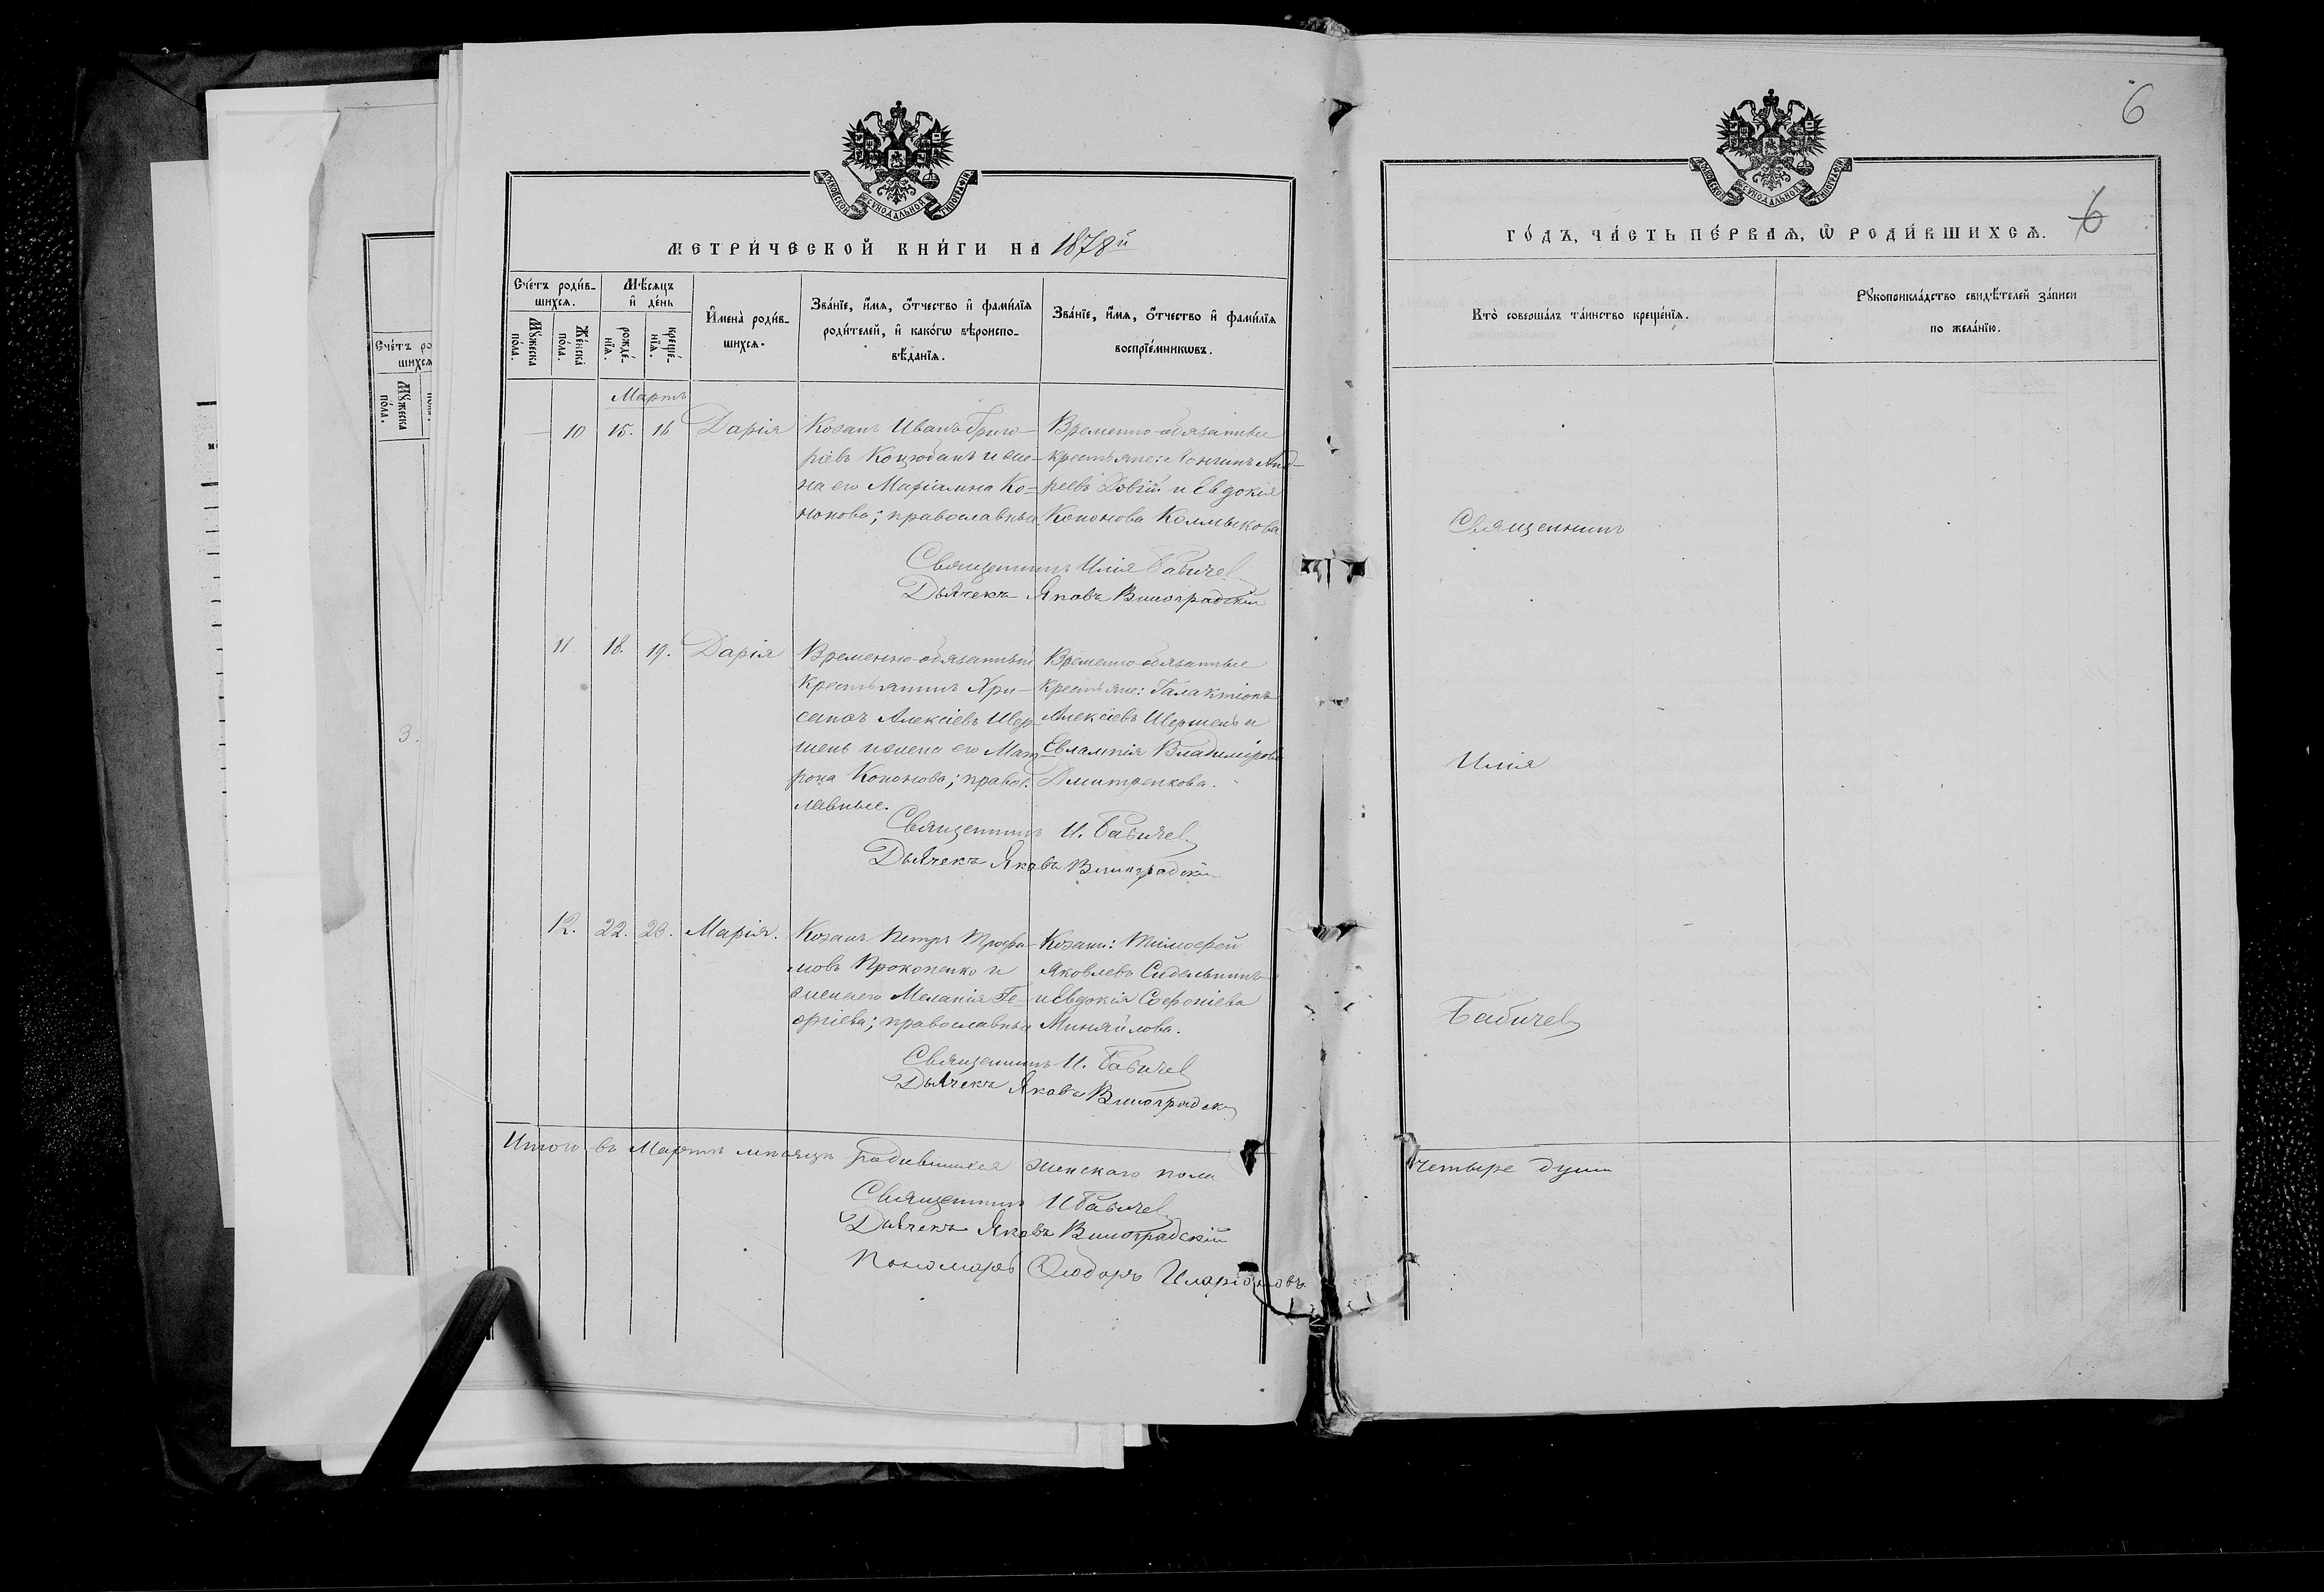 6
МОСКОВСКОЙ СѴНОДАЛЬНОЙ ТИПОГРАФІИ
МОСКОВСКОЙ СѴНОДАЛЬНОЙ ТИПОГРАФІИ
МЕТРИ́ЧЕСКОЙ КНИ́ГИ НА 1878й
ГО́ДЪ, ЧА́СТЬ ПЕ́РВАѦ, Ѡ РОДИ́ВШИХСѦ. 6
Сче́тъ роди́в-
шихсѧ.
Мꙋ́жеска
по́ла.
Же́нска
по́ла.
Мѣ́сѧцъ
и҆ де́нь
рожде́-
нїѧ.
креще́-
нїѧ.
И҆мена̀ роди́в-
шихсѧ.
Зва́нїе, и҆́мѧ, ѻ҆́тчество и҆ фами́лїѧ
роди́телей, и҆ како́гѡ вѣроиспо-
вѣ́данїѧ.
Зва́нїе, и҆́мѧ, ѻ҆́тчество и҆ фами́лїѧ
воспрїе́мникѡвъ.
Кто̀ соверша́лъ та́инство креще́нїѧ.
Рꙋкоприкла́дство свидѣ́телей за́писи
по жела́нїю.
Мартъ
— 10 15. 16 Дарія
Козакъ Иванъ Григо-
ріевъ Коцюбанъ и же-
на его Маріамна Ко-
нонова; православные
Временно-обязанные
крестьяне: Лонгинъ Анд-
реевъ Довгій и Евдокія
Кононова Колмыкова
Священникъ Илія Бабичев
Дьячекъ Яковъ Виноградскій
11 18. 19. Дарія
Временно-обязанный
крестьянинъ Хри-
санфъ Алексіевъ Шер-
шень и жена его Мат-
рона Кононова; правос-
лавные.
Временно-обязанные
крестьяне: Галактіонъ
Алексіевъ Шершень и
Евлампія Владимірова
Дмитренкова.
Священникъ И. Бабичев
Дьячекъ Яковъ Виноградскій
12. 22. 23. Марія.
Козакъ Петръ Трофи-
мовъ Прокопенко и
жена его Меланія Ге-
оргіева; православные
Козаки: Тимофей
Яковлевъ Сидельникъ
и Евдокія Софоніева
Миняйлова.
Священникъ И. Бабичев
Дьячекъ Яковъ Виноградскій
Итого въ Мартѣ мѣсяцѣ родившихся женскаго пола
Священникъ И Бабичев
Дьячекъ Яковъ Виноградскій
Пономарь Ѳеодоръ Иларіоновъ.
Священникъ
Илія
Бабичев
четыре души
Сче́тъ ро
шихсѧ
Мꙋ́жеска
по́ла.
3.